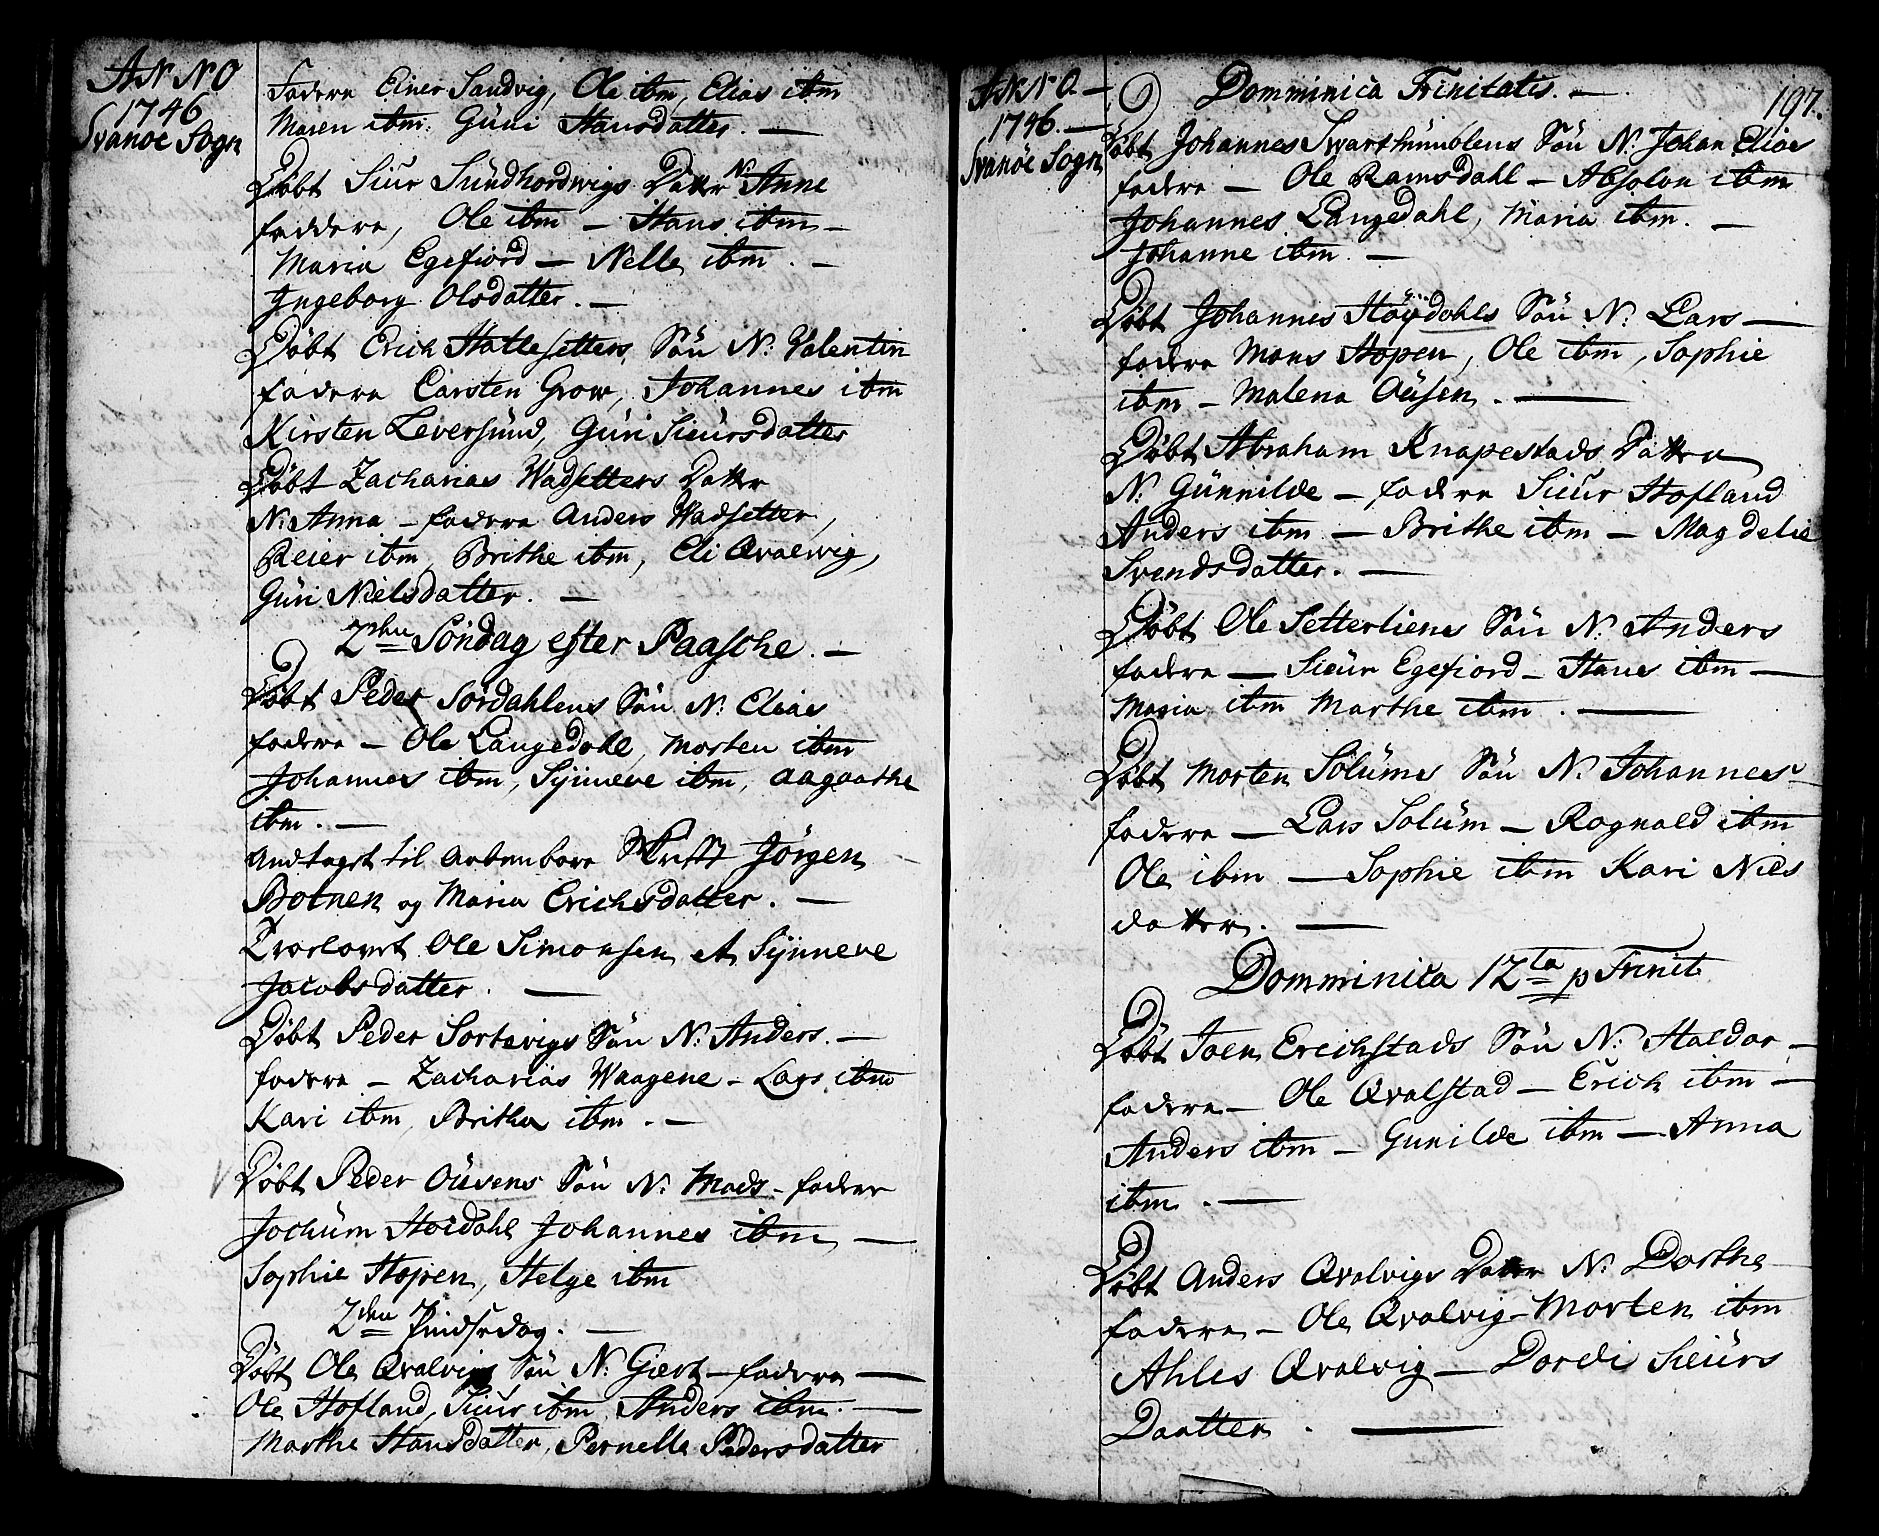 ANNO
1746
Svanöe Sogn
Fadere Einer Sandvig, Ole ibm, Elias ibm
Maren ibm. Güni Hansdatter. —
Döbt Siur Sündhordwigs Datter N: Anne
faddere, Ole ibm — Hans ibm —
Maria Egefiord — Nelle ibm. —
Ingeborg Olsdatter. —
Döbt Erich Hallesetters Sön N: Valentin
fadere Carsten Grow, Johannes ibm
Kirsten Leversünd, Güri Sieürsdatter
Döbt Zacharias Wadsetters Datter
N: Anna — fadere Anders Wadsetter,
Reier ibm, Brithe ibm, Eli Qvalwig,
Güri Nielsdatter. —
2den Söndag efter Paasche. —
Döbt Peder Sördahlens Sön N: Elias
fadere — Ole Langedahl, Morten ibm
Johannes ibm, Synneve ibm, Aagaathe
ibm. —
Andtagst til Aabenbare Skrift Jörgen
Botnen og Maria Erichsdatter. —
Trolovet Ole Simonsen et Synneve
Jacobsdatter. —
Döbt Peder Sortevigs Sön N: Anders. —
fadere — Zacharias Waagene — Lars ibm
Kari ibm, Britha ibm. —
Döbt Peder Oüsens Sön N: Mads — fadere
Jochum Hoidahl Johannes ibm —
Sophie Hopen, Helge ibm
2den Pindsedag. —
Döbt Ole Qvalvigs Sön N: Giert — fadere —
Ole Hofland, Siur ibm, Anders ibm. —
Marthe Hansdatter, Pernelle Pedersdatter
ANNO —
1746. —
Svanöe Sogn
197.
Domminica Trinitatis. —
Döbt Johannes Swarthumblens Sön N: Johan Elias
fadere — Ole Ramsdahl — Absolon ibm
Johannes Langedahl, Maria ibm. —
Johanne ibm. —
Döbt Johannes Höydahls Sön N: Lars —
fadere Mons Hopen, Ole ibm, Sophie
ibm — Malena Oüsen. —
Döbt Abraham Knapestads Datter
N: Günnilde — fadere Sieur Hofland
Anders ibm — Brithe ibm — Magdelie
Svendsdatter. —
Döbt Ole Setterliens Sön N: Anders
fadere — Sieür Egefiord — Hans ibm —
Maria ibm Marthe ibm. —
Döbt Morten Solüms Sön N: Johannes
fadere — Lars Solüm — Ragnald ibm
Ole ibm — Sophie ibm Kari Niels
datter. —
Domminica 12ta p Trinit
Döbt Joen Erichstads Sön N: Haldor —
fadere — Ole Qvalstad — Erich ibm —
Anders ibm — Gunilde ibm — Anna
ibm. —
Döbt Anders Qvalvigs Datter N: Dorthe
fadere — Ole Qvalvig — Morten ibm
Ahles Qvalvig — Dordi Sieürs
Daatter. —